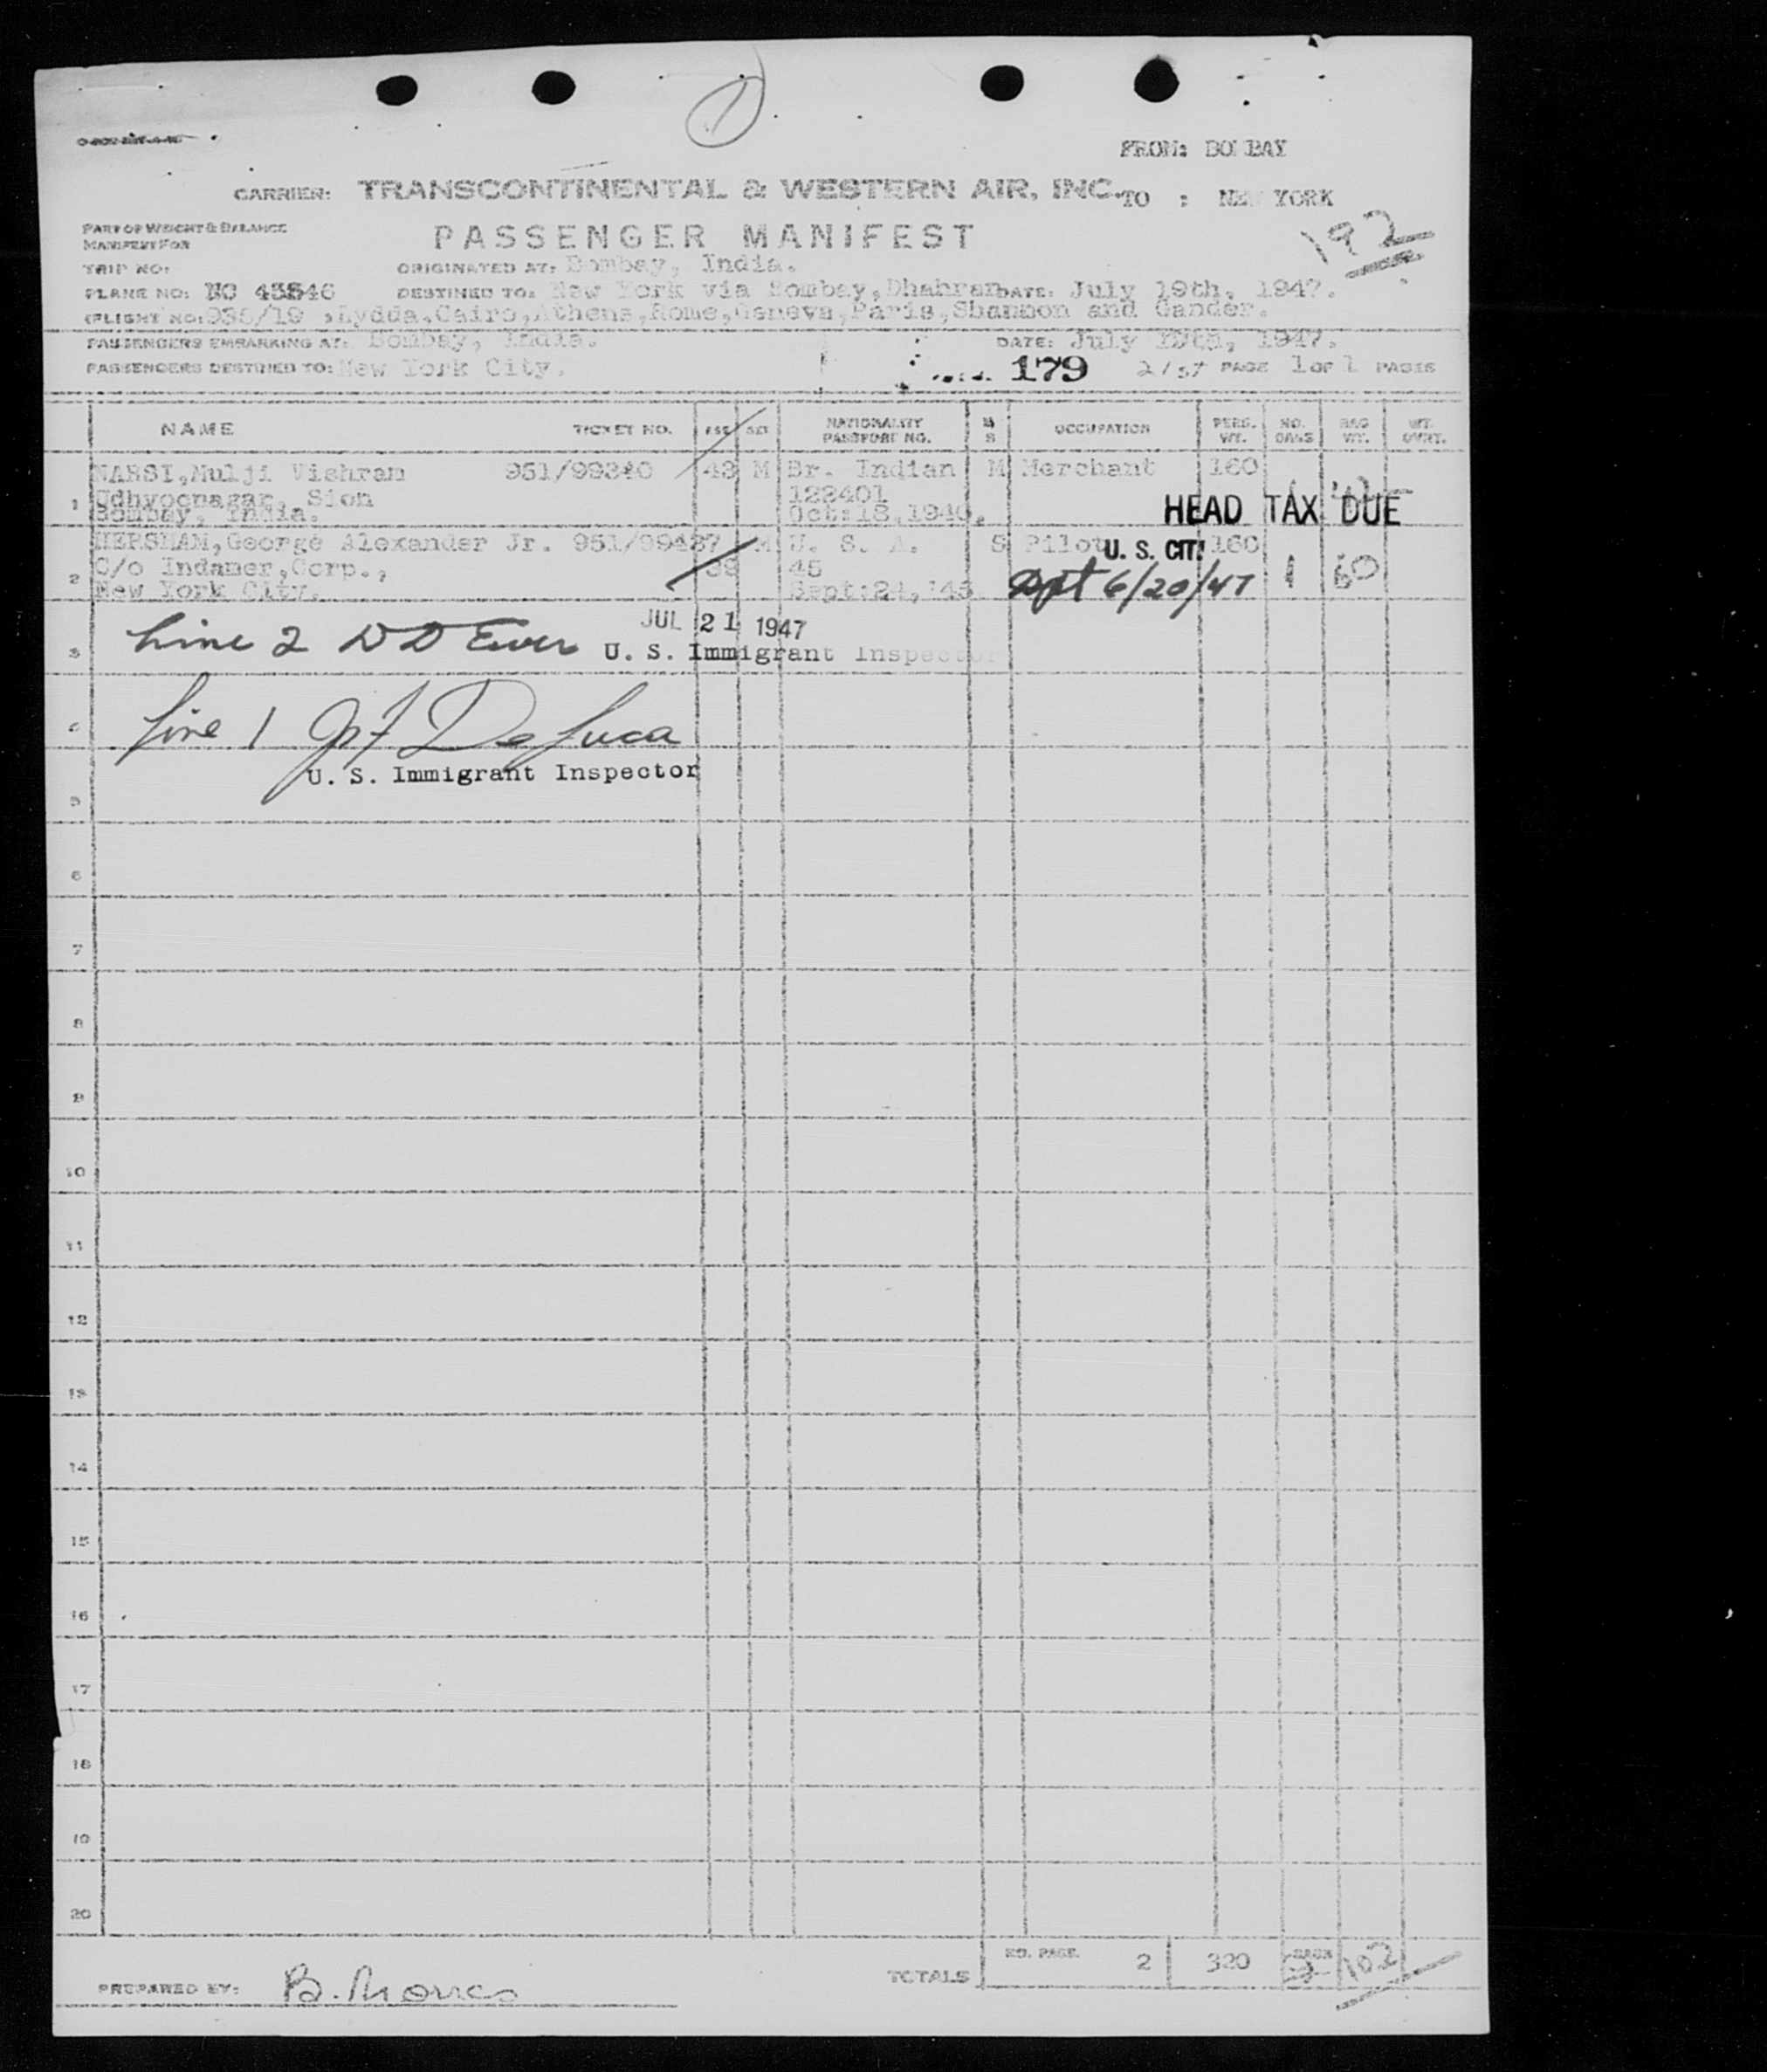 1
FROM: BOMBAY
CARRIER: TRANSCONTINENTAL & WESTERN AIR, INC. TO : NEW YORK
192
PART OF WEIGHT & BALANCE
MANIFEST FOR
PASSENGER MANIFEST
TRIP NO: ORIGINATED AT: Bombay, India.
PLANE NO: NC 45546 DESTINED TO: New York via Bombay, Dhahran DATE: July 19th, 1947.
(FLIGHT NO: 936/19 ,Lydda,Cairo,Athens,Rome,Geneva,Paris,Shannon and Gander.
PASSENGERS EMBARKING AT: Bombay, India. DATE: July 19th, 1947.
PASSENGERS DESTINED TO: New York City. 179 2/57 PAGE 1 OF 1 PAGES
NAME TICKET NO. AGE SEX NATIONALITY PASSPORT NO. M S OCCUPATION PERS. WT. NO. BAGS BAG WT. WT. OVRT.
NARSI,Mulji Vishram 951/99340 43 M Br. Indian M Merchant 160
1 Udhyognagar, Sion 122401 HEAD TAX DUE
Bombay, India. Oct:18,1946.
HERSHAM,George Alexander Jr. 951/99437 M U. S. A. S Pilot U. S. CIT. 160
2 C/o Indamer,Corp., 38 45 1 60
New York City. Sept:24,'45 Dept 6/20/47
JUL 21 1947
3 Line 2 U. S. Immigrant Inspector
4 Line 1 De Luca
U. S. Immigrant Inspector
5
6
7
8
9
10
11
12
13
14
15
16
17
18
19
20
TOTALS NO. PASS. 2 320 102
PREPARED BY: B.